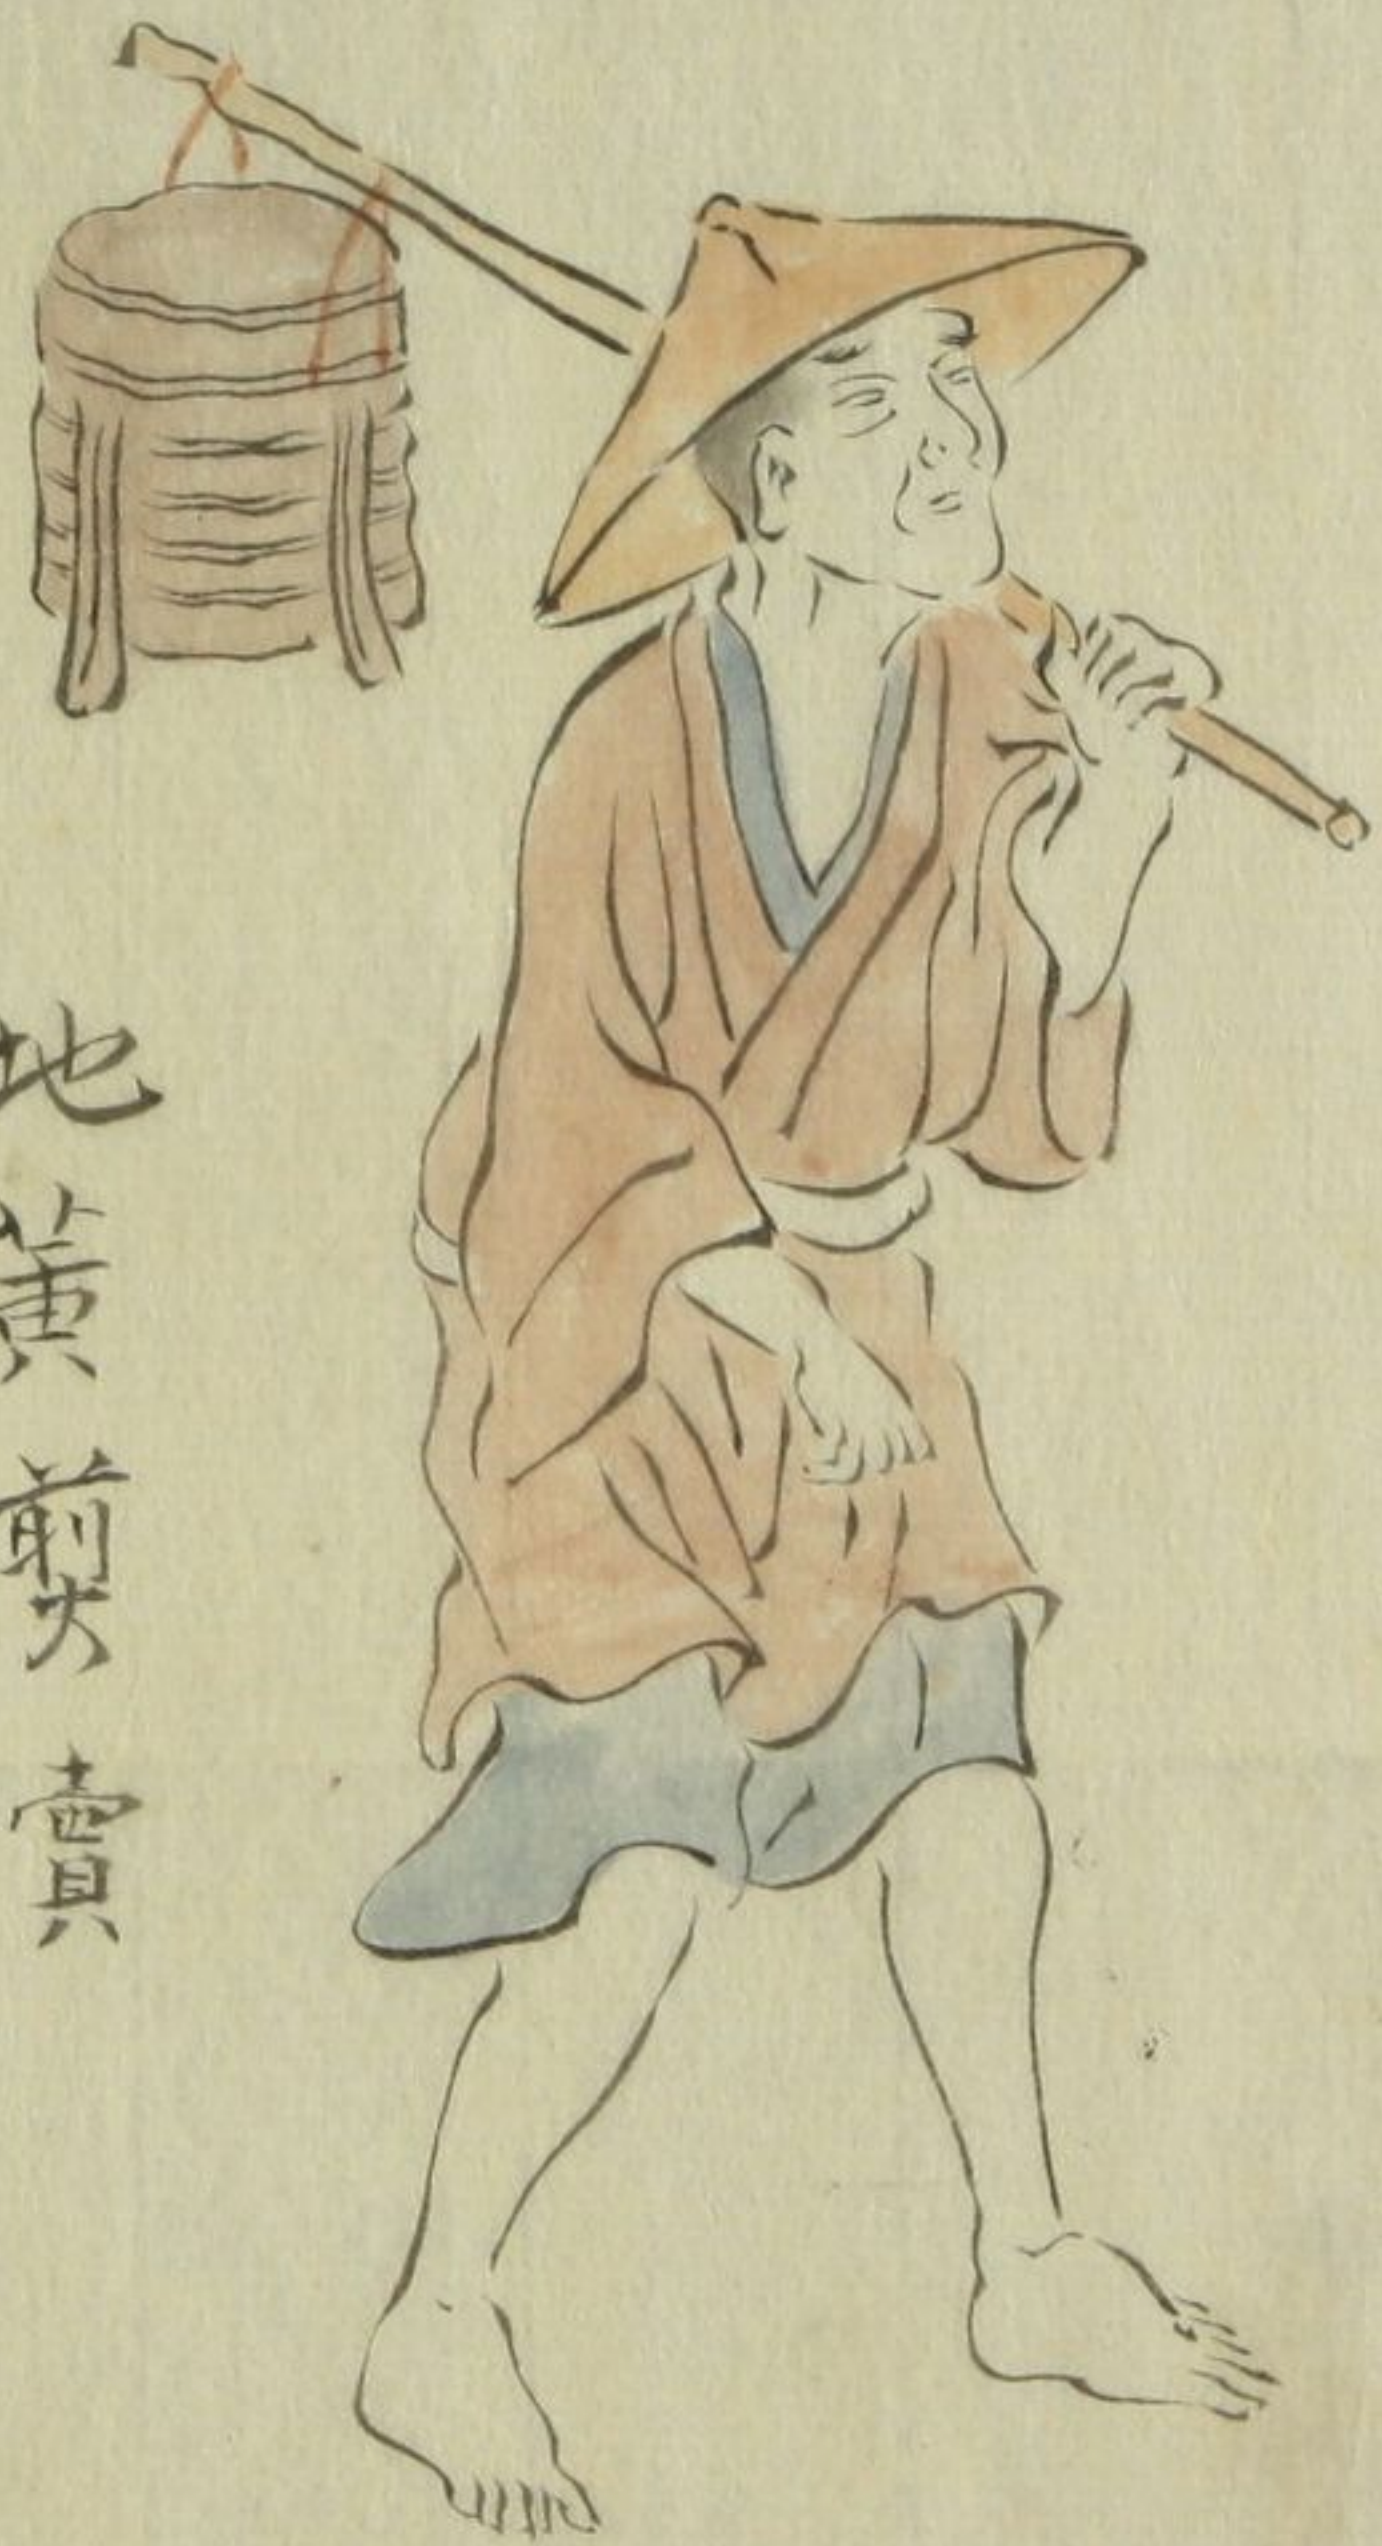 地黄煎賣